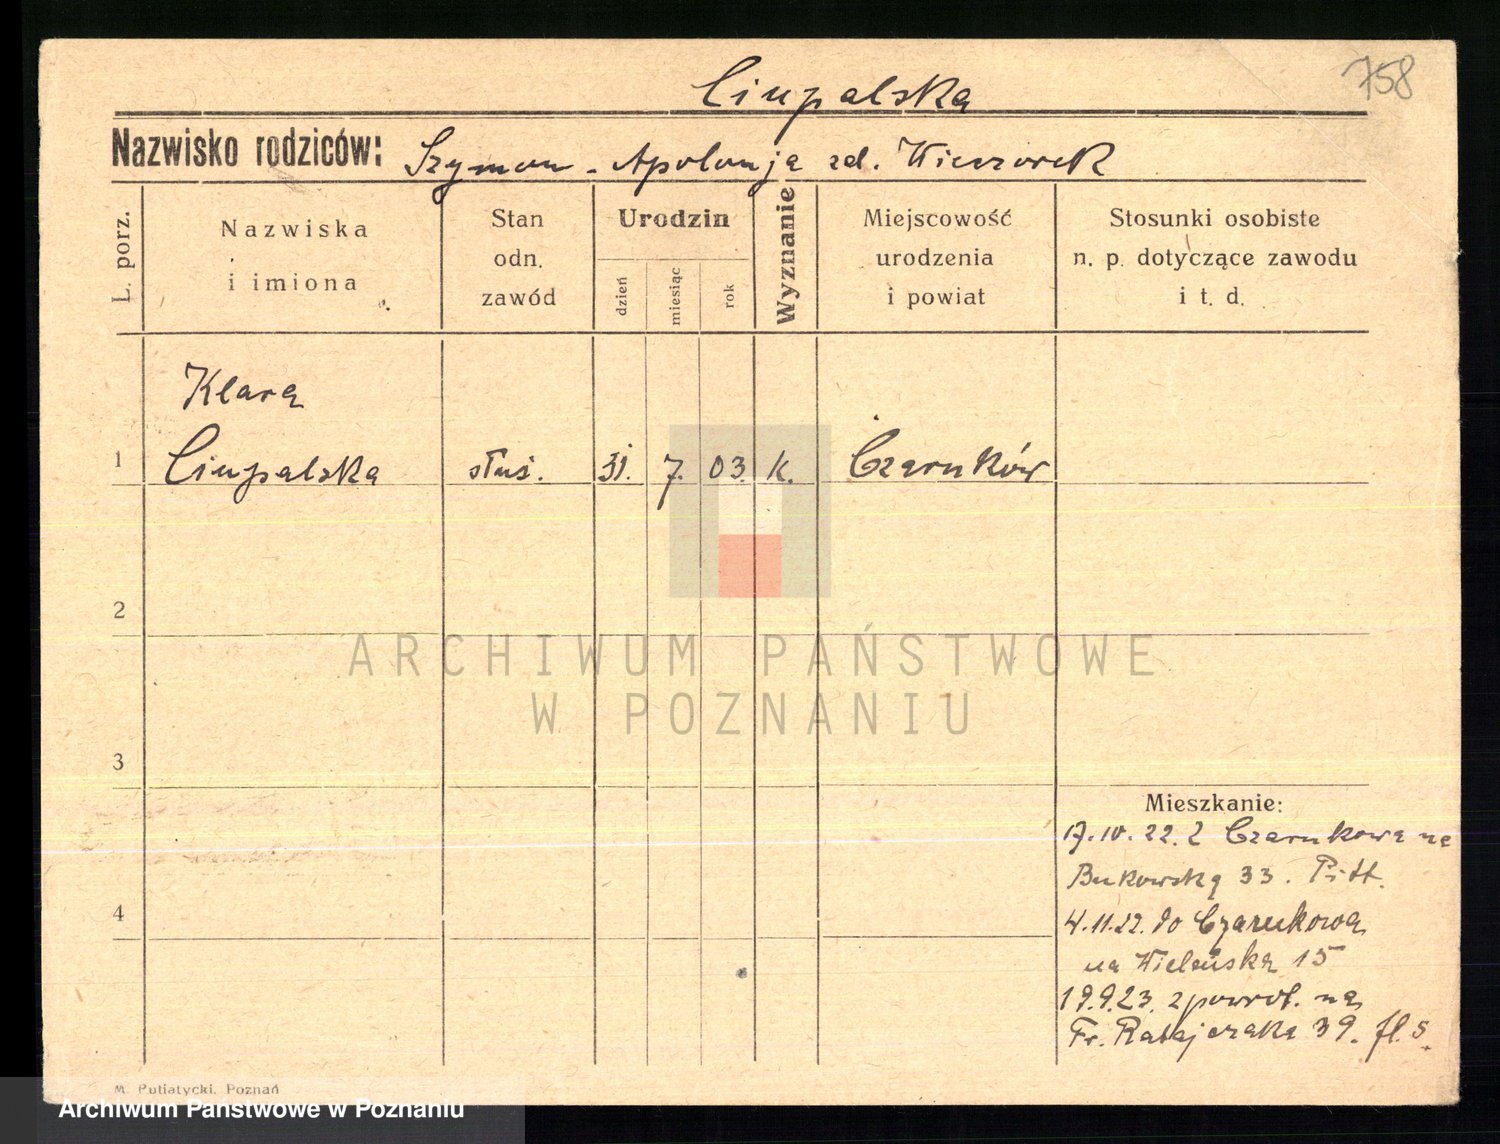 758
Ciupalska
Nazwisko rodziców: Szymon - Apolonja zd. Wieczorek
L. porz.
Nazwiska
i imiona
Stan
odn.
zawód
Urodzin
dzień
miesiąc
rok
Wyznanie
Miejscowość
urodzenia
i powiat
Stosunki osobiste
n. p. dotyczące zawodu
i t. d.
Klara
1 Ciupalska służ. 31. 7. 03. k. Czarnków
2
ARCHIWUM PAŃSTWOWE
W POZNANIU
3
Mieszkanie:
17.10.22. z Czarnkowa na
Bukowską 33.
4
4.11.22. do Czarnkowa
na Wieleńska 15
19.9.23. zpowrot. na
Fr. Ratajczaka 39.
M. Putiatycki, Poznań
Archiwum Państwowe w Poznaniu